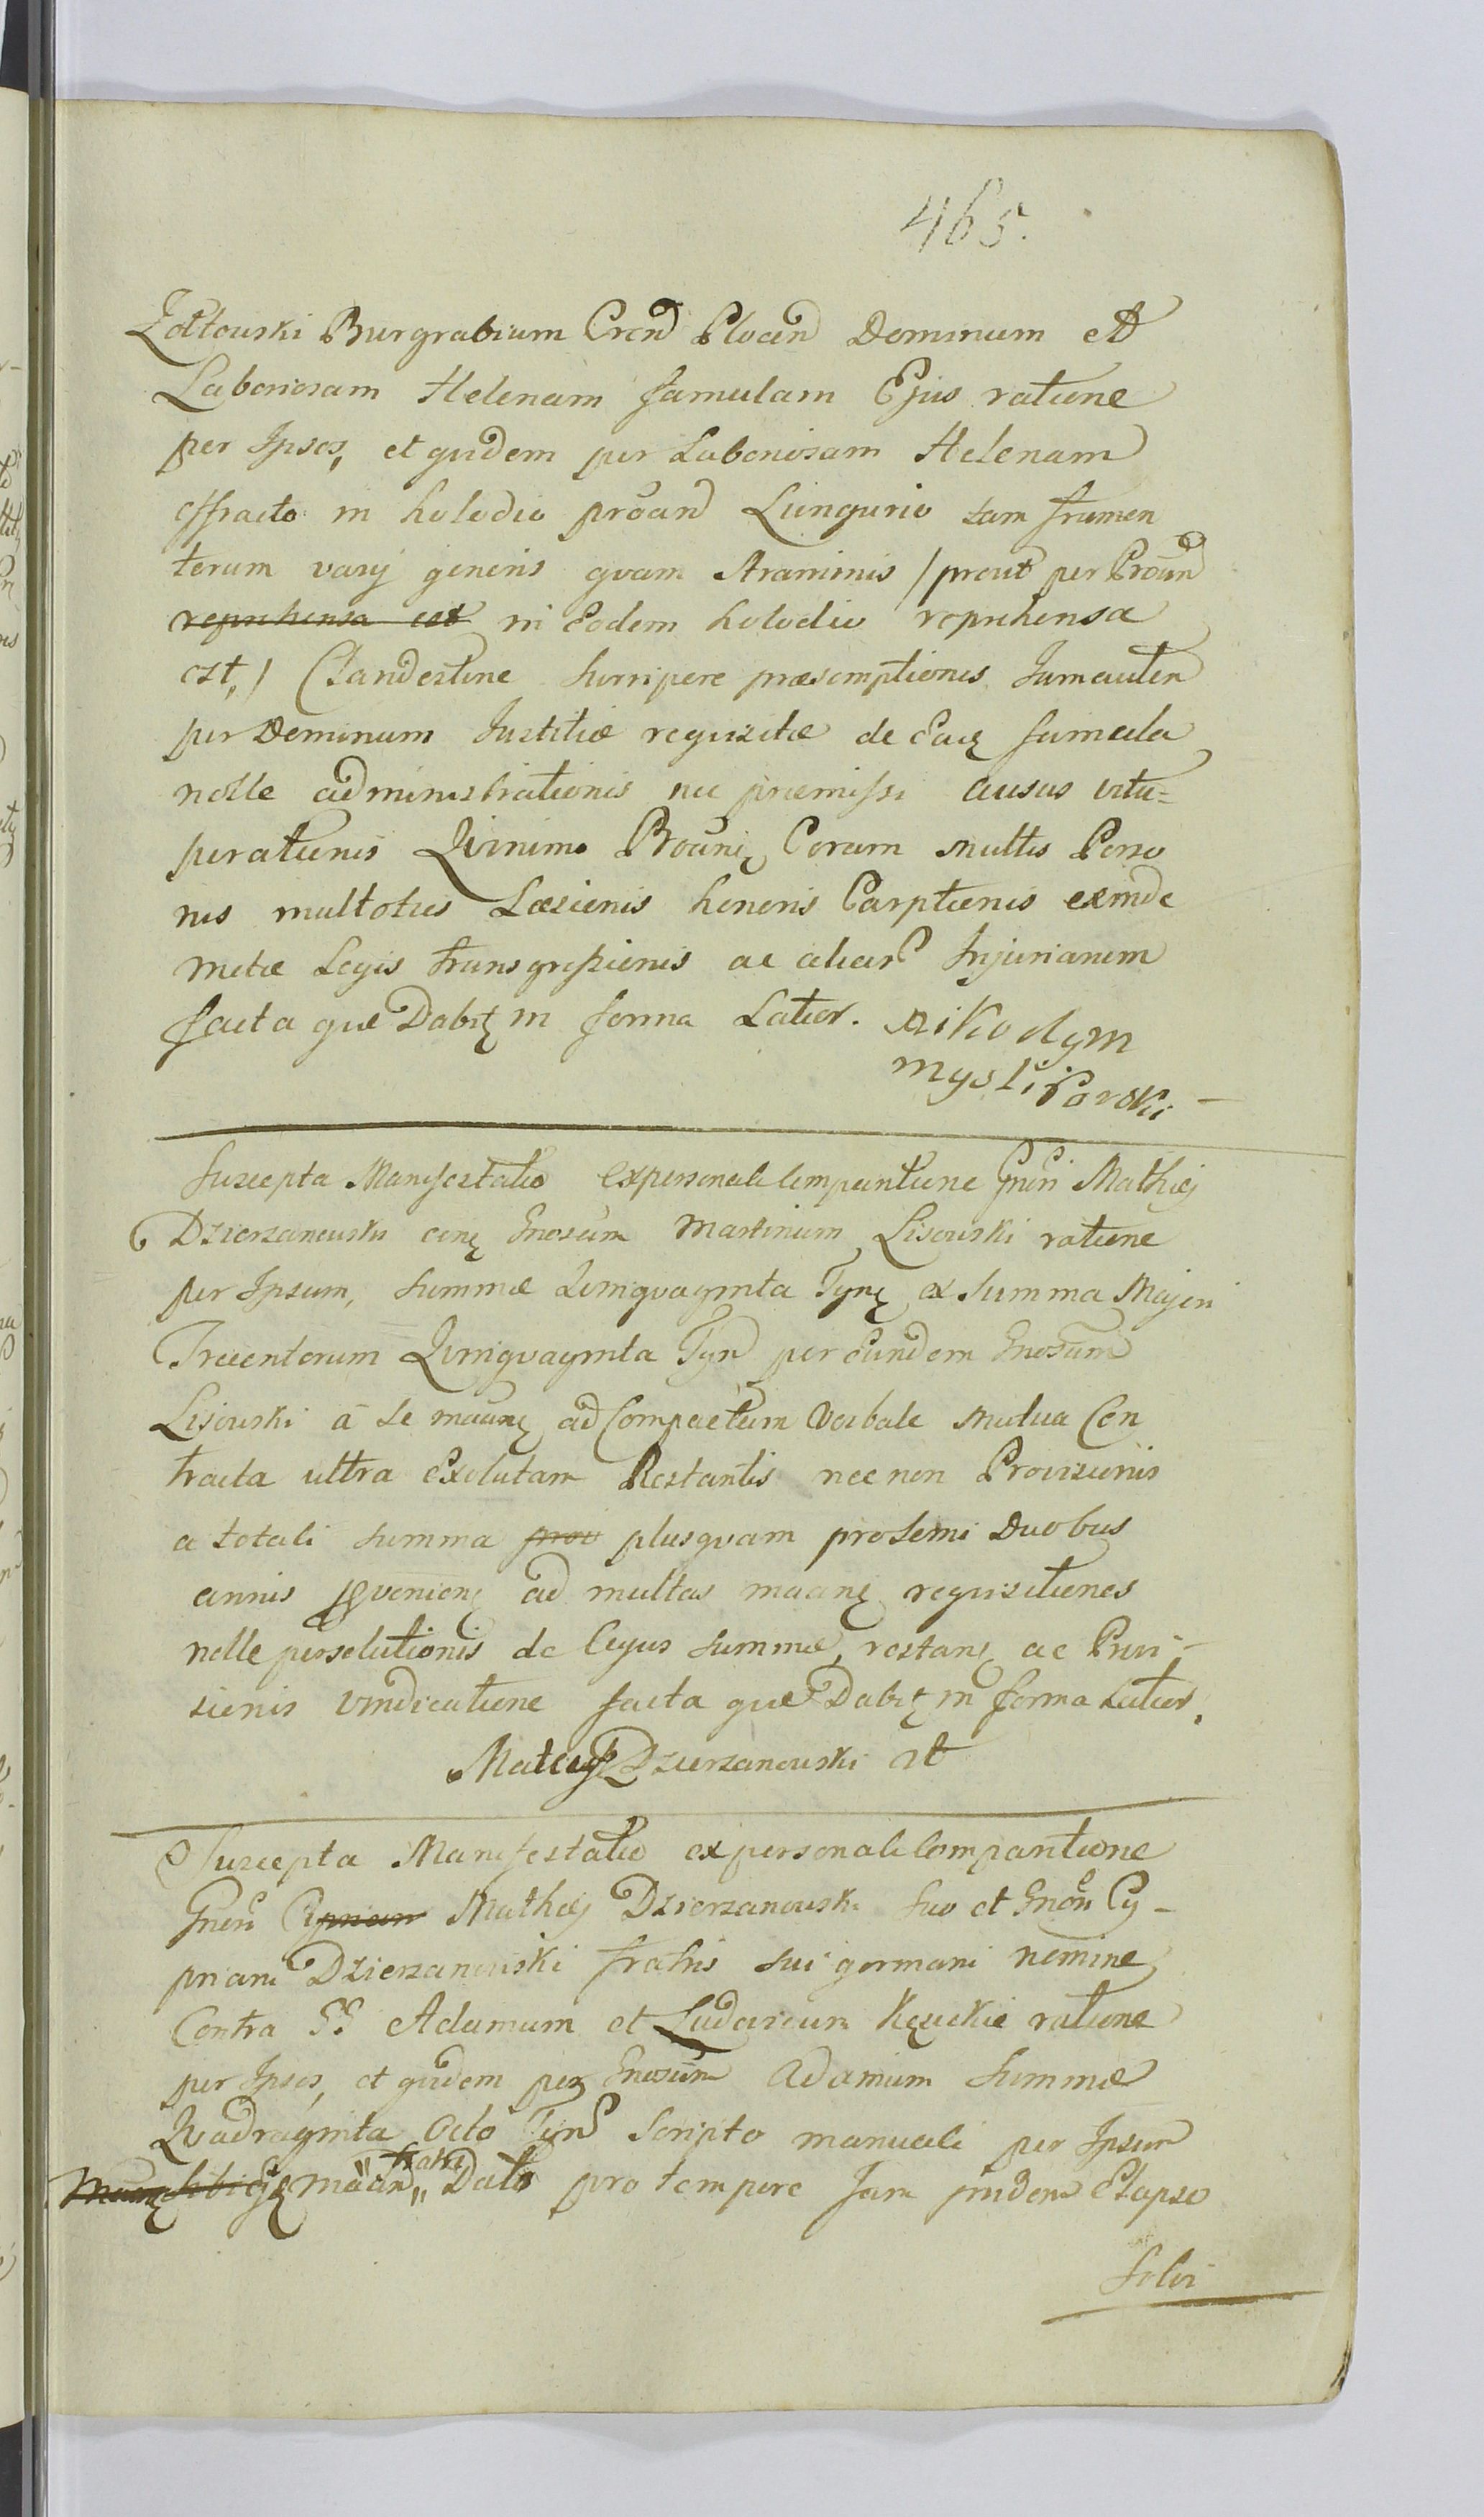 465.
Zołtowski Burgrabium Cren Plocen Dominum et
Laboriosam Helenam famulam Ejus ratione
per Ipsos, et quidem per Laboriosam Helenam
effracto in holodio proan Lungurio tam frumen
torum varij generis quam Araminis / prout per Proan
reprehensa est in Eodem holodio reprehensa
est, / Clandestine surripere præsomptionis Jamautem
per Dominum Justitiæ requisitæ de Eaq famula
nolle administrationis nec præmissi ausus vitu=
perationis Quinimo Proanq Coram multis Perso
nis multoties Læsionis honoris Carptionis exinde
metæ Legis transgressionis ac aliar Injuriarum
facta quæ Dabit in forma Latior. Nikodym
Mysliborski –
Suscepta Manifestatio ex personali Comparitione Gnsi Mathiæ
Dzierzanowski conq Gnosum Martinum Lisowski ratione
per Ipsum, Summæ Quinquaginta Tynq ex Summa Majori
Trecentorum Quinquaginta Tyn per Eundem Gnosum
Lisowski a se maanq ad Compactum Verbale Mutua Con
tracta ultra Exolutam Restantis nec non Provisionis
a totali Summa prov plusquam pro semi Duobus
annis pvenienq ad multas maanq requisitiones
nolle persolutionis de Cujus Summæ, restanq ac Provi-
sionis vindicatione facta quæ Dabit in forma Latior.
Maciey Dzierzanowski mp
Suscepta Manifestatio ex personali Comparitione
Gnsi Cyprian Mathiæ Dzierzanowski Suo et Gnosi Cy-
priani Dzierzanowski fratris sui germani nomine
Contra GG Adamum et Ludovicum Kęckie ratione
per Ipsos, et quidem per Gnosum Adamum Summæ
Quadraginta Octo Tyn Scripto manuali per Ipsum
fratri
Maanq sibi ejq maan Dato pro tempore Jam pridem Elapso
Solvi